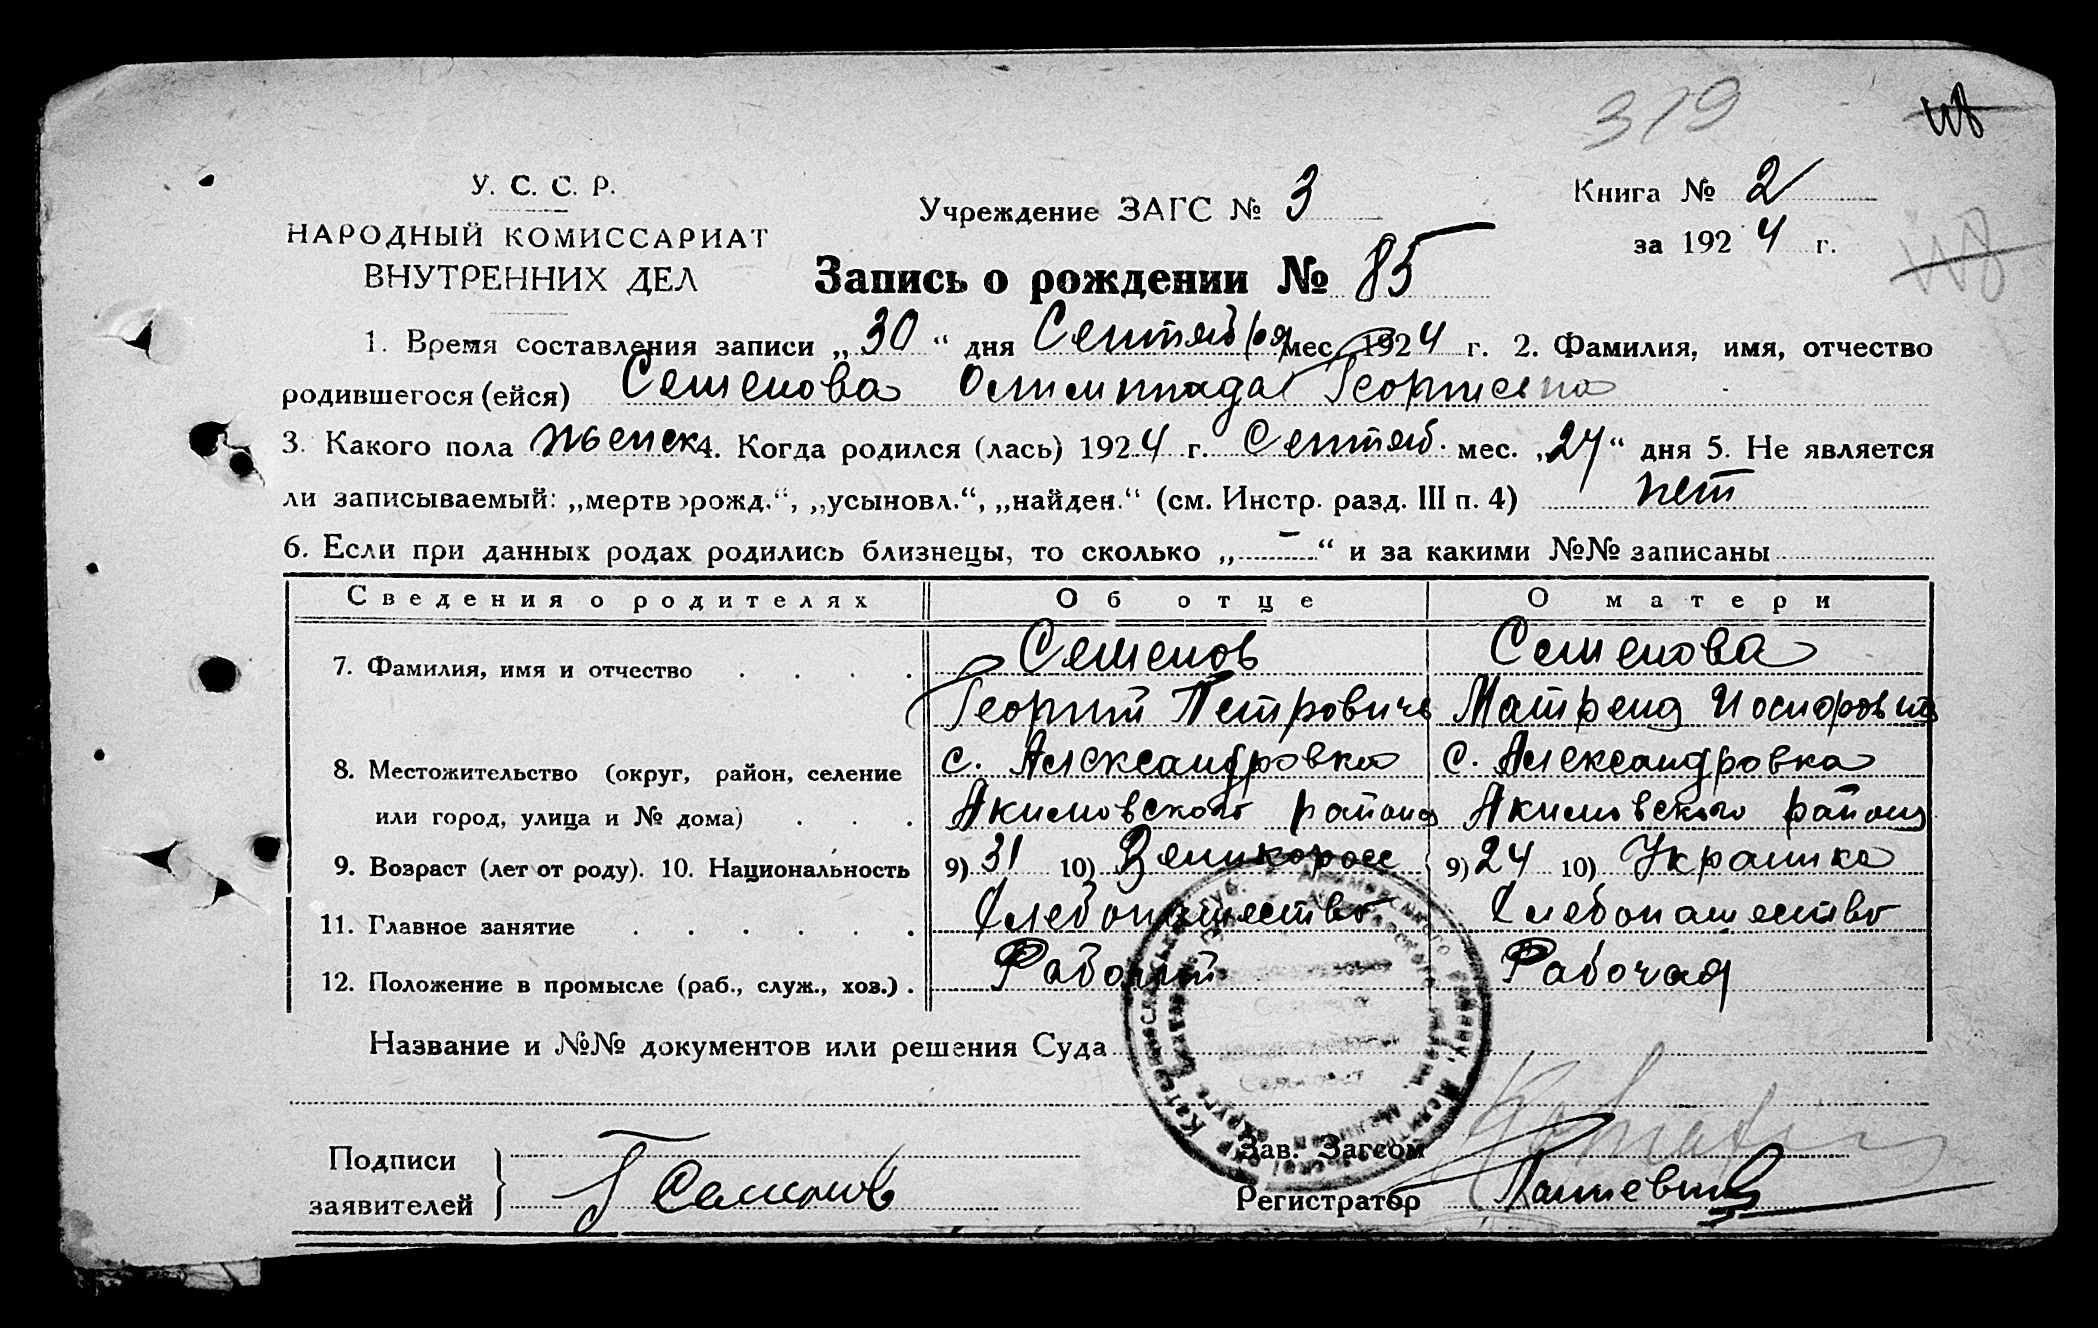 319
У. С. С. Р.
НАРОДНЫЙ КОМИССАРИАТ
ВНУТРЕННИХ ДЕЛ
Учреждение ЗАГС № 3
Книга № 2
за 1924 г.
Запись о рождении № 85
1. Время составления записи „30“ дня Сентября мес. 1924 г. 2. Фамилия, имя, отчество
родившегося (ейся) Семенова Олимпиада Георгиевна
3. Какого пола женск 4. Когда родился (лась) 1924 г. Сентяб. мес. „27“ дня 5. Не является
ли записываемый: „мертворожд.“, „усыновл.“, „найден.“ (см. Инстр. разд. III п. 4) нет
6. Если при данных родах родились близнецы, то сколько „—“ и за какими №№ записаны
Сведения о родителях Об отце О матери
7. Фамилия, имя и отчество Семенов Семенова
Георгий Петрович Матрена Иосифовна
8. Местожительство (округ, район, селение с. Александровка с. Александровка
или город, улица и № дома) Акимовского района Акимовского района
9. Возраст (лет от роду). 10. Национальность 9) 31 10) Великоросс 9) 24 10) Украинка
11. Главное занятие Хлебопашество Хлебопашество
12. Положение в промысле (раб., служ., хоз.) Рабочий Рабочая
Название и №№ документов или решения Суда
Подписи
заявителей
Г Семенов
Зав. Загсом
Регистратор